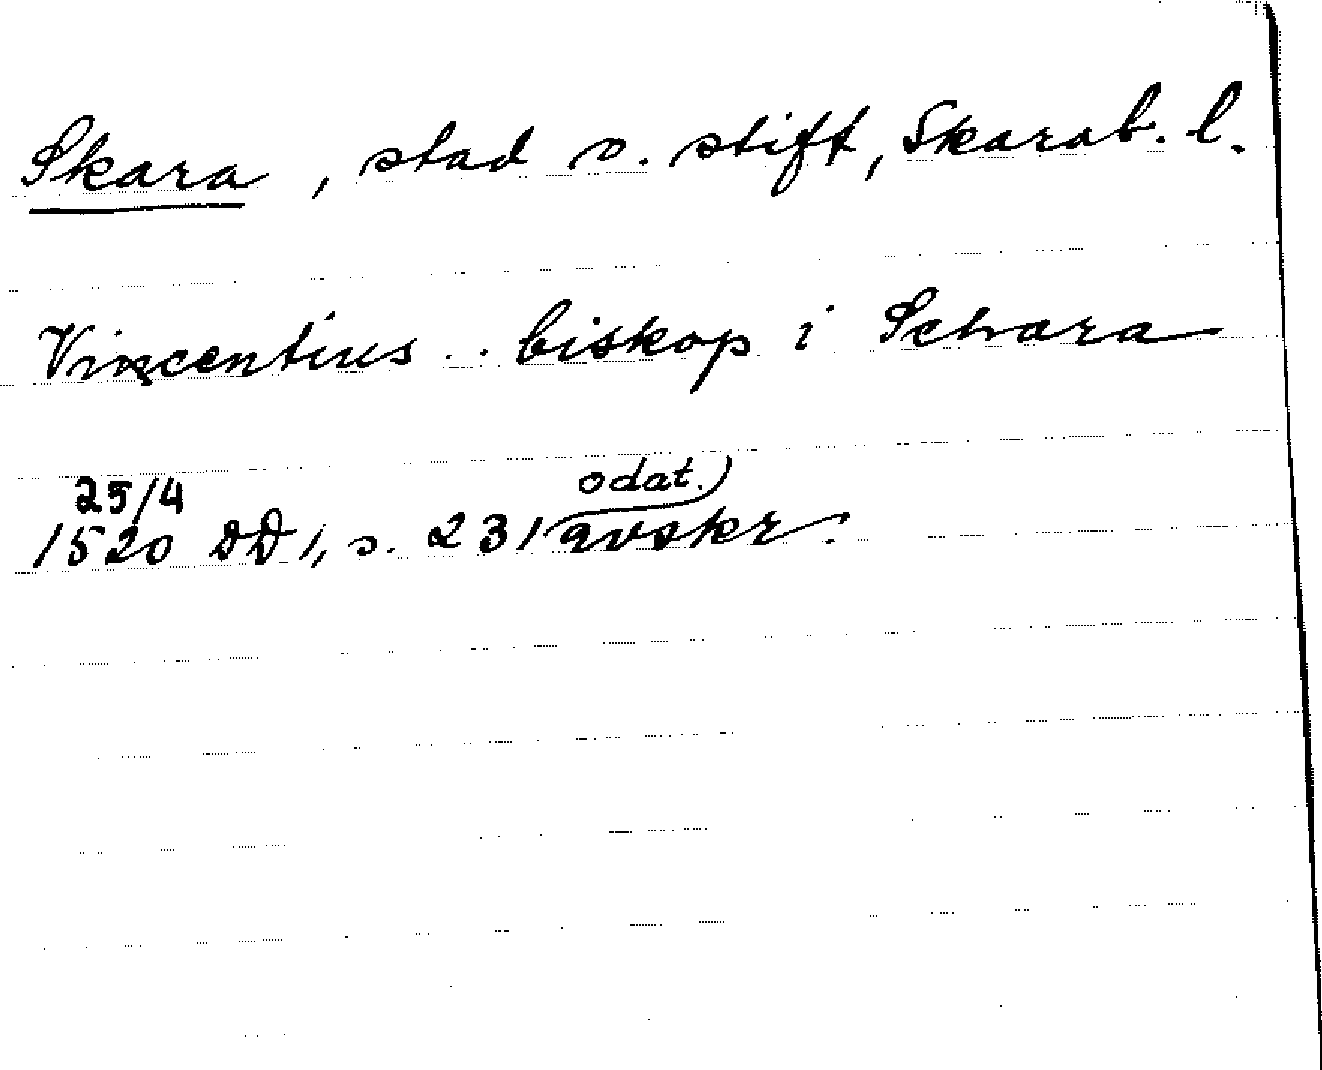 Skara, stad o. stift, Skarab. l.
Vincentius .. biskop i Schara
25/4
odat.)
1520 DD 1, s. 231 avskr.